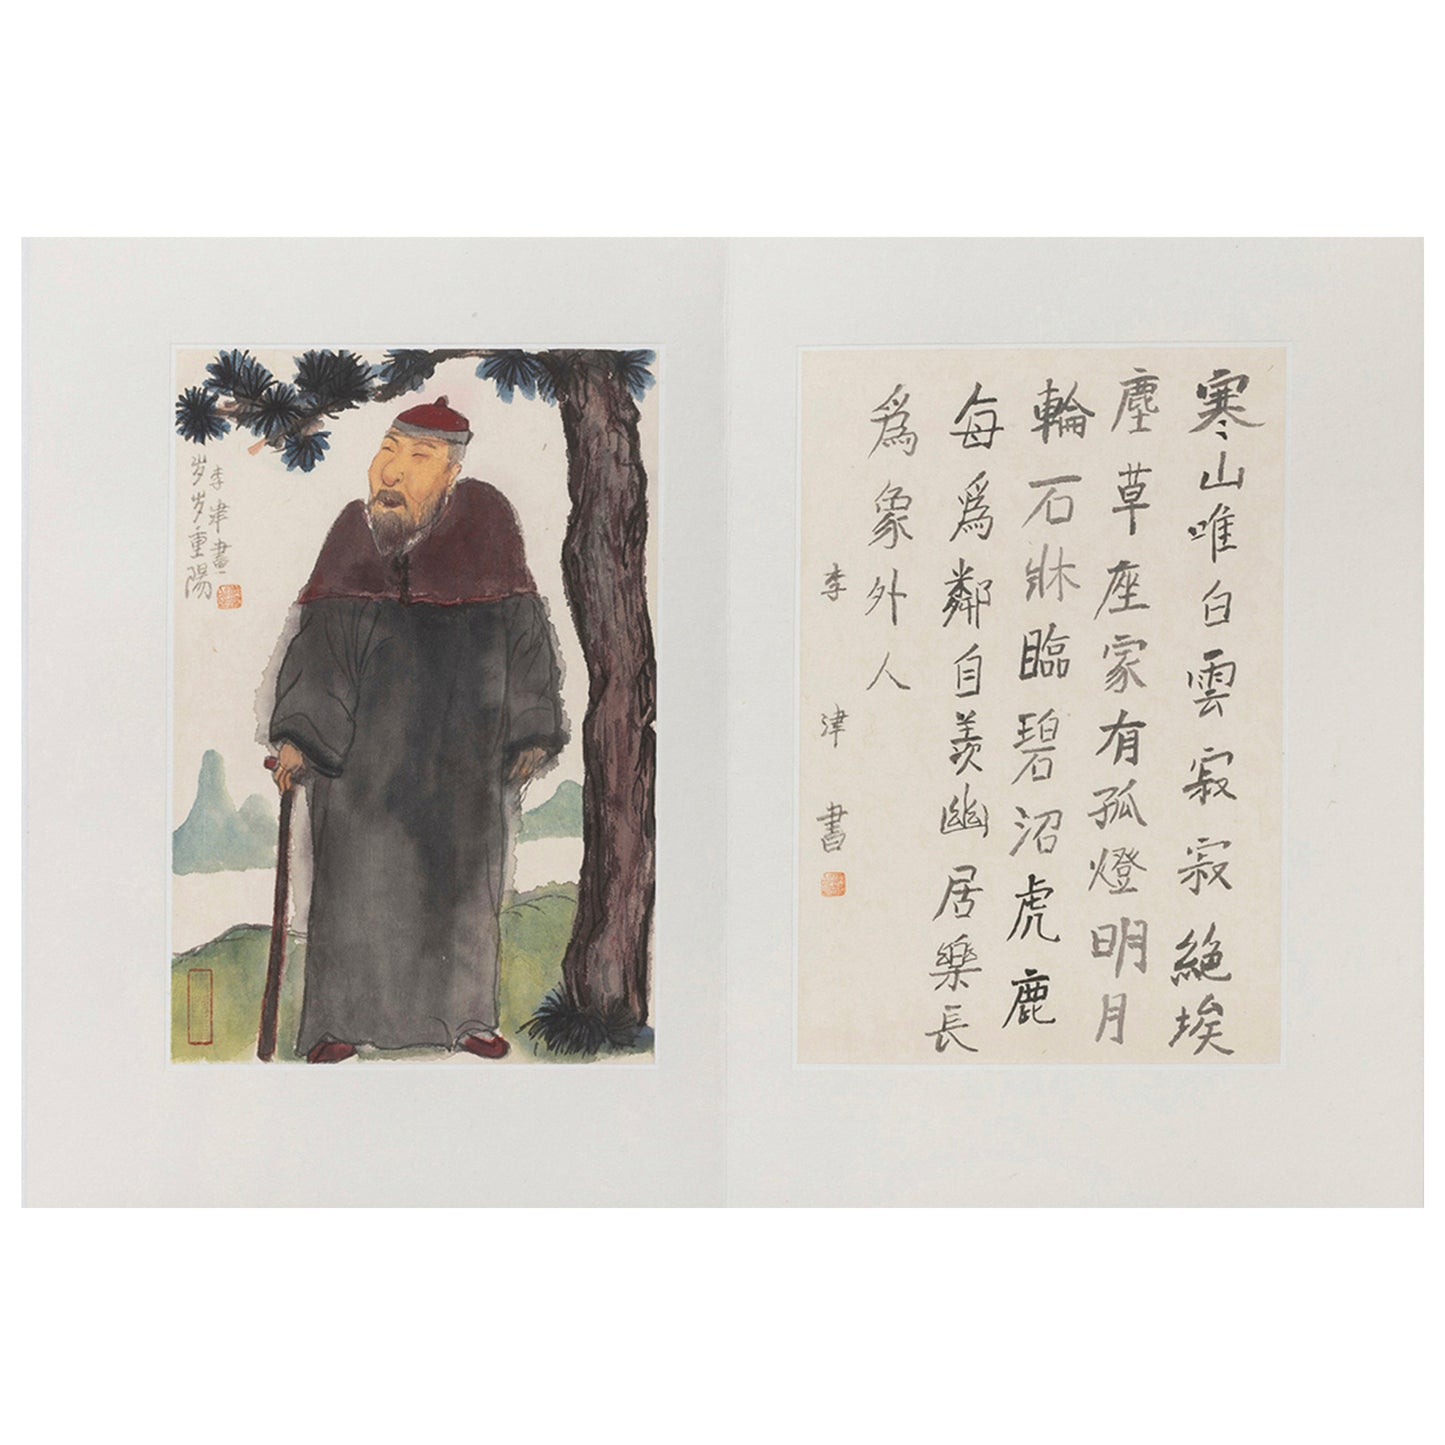 寒山唯白雲寂寂絶埃
塵草座家有孤燈明月
輪石牀臨碧沼虎鹿
每爲鄰自羨幽居樂長
爲象外人
李津書
岁岁重陽
李津畫